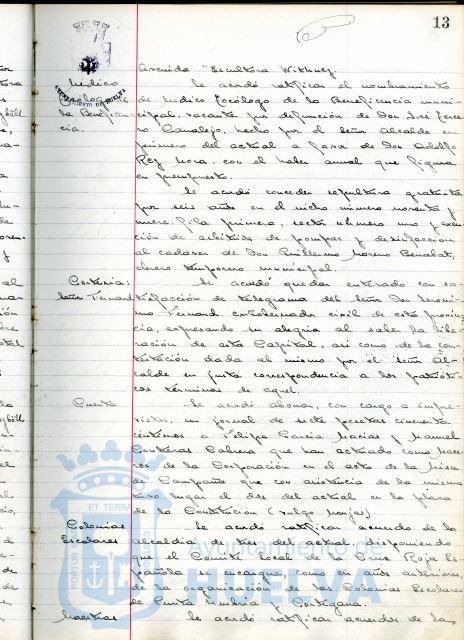 13
AYUNTAMIENTO DE HUELVA
Avenida "Escultora Withney
Médico Se acordó ratificar el nombramiento
Tocólogo de de Médico Tocólogo de la Beneficencia muni-
la Beneficen- cipal, vacante por defunción de Don José
cia. Canalejo, hecho por el Señor Alcalde en
primero del actual a favor de Don Adolfo
Rey Mora, con el haber anual que figura
en presupuesto.
Se acordó conceder sepultura gratuita
por seis años en el nicho número noventa y
nueve, fila primera, sector número uno y exen-
ción de arbitrios de pompas y
al cadáver de Don Guillermo Moreno
obrero temporero municipal.
Cortesía: Se acordó quedar enterado con sa-
Señor tisfacción de telegrama del Señor Don Jeróni-
mo Gobernador civil de esta provin-
cia, expresando su alegría al saber la libe-
ración de esta Capital, así como, de la con-
testación dada al mismo por el Señor Al-
calde en justa correspondencia a los patrióti-
cos términos de aquel.
Cuenta Se acordó abonar, con cargo a impre-
vistos, un jornal de siete pesetas cincuenta
céntimos a Felipe García Macías y Manuel
Contreras Cabrera que han actuado como Mace-
ros de la Corporación en el acto de la Misa
de Campaña que con asistencia de la misma
tuvo lugar el dos del actual en la plaza
de la Constitución (vulgo Monjas).
Colonias Se acordó ratificar acuerdo de la
Escolares alcaldía de tres del actual, disponiendo
que el Comité local de la Cruz Roja Es-
pañola se encargue, como en años anteriores
de la organización de las Colonias Escolares
de Punta Umbría y Cortegana.
Maestras Se acordó ratificar acuerdos de las
ET TERRÆ
PORTUS
Ayuntamiento de
HUELVA